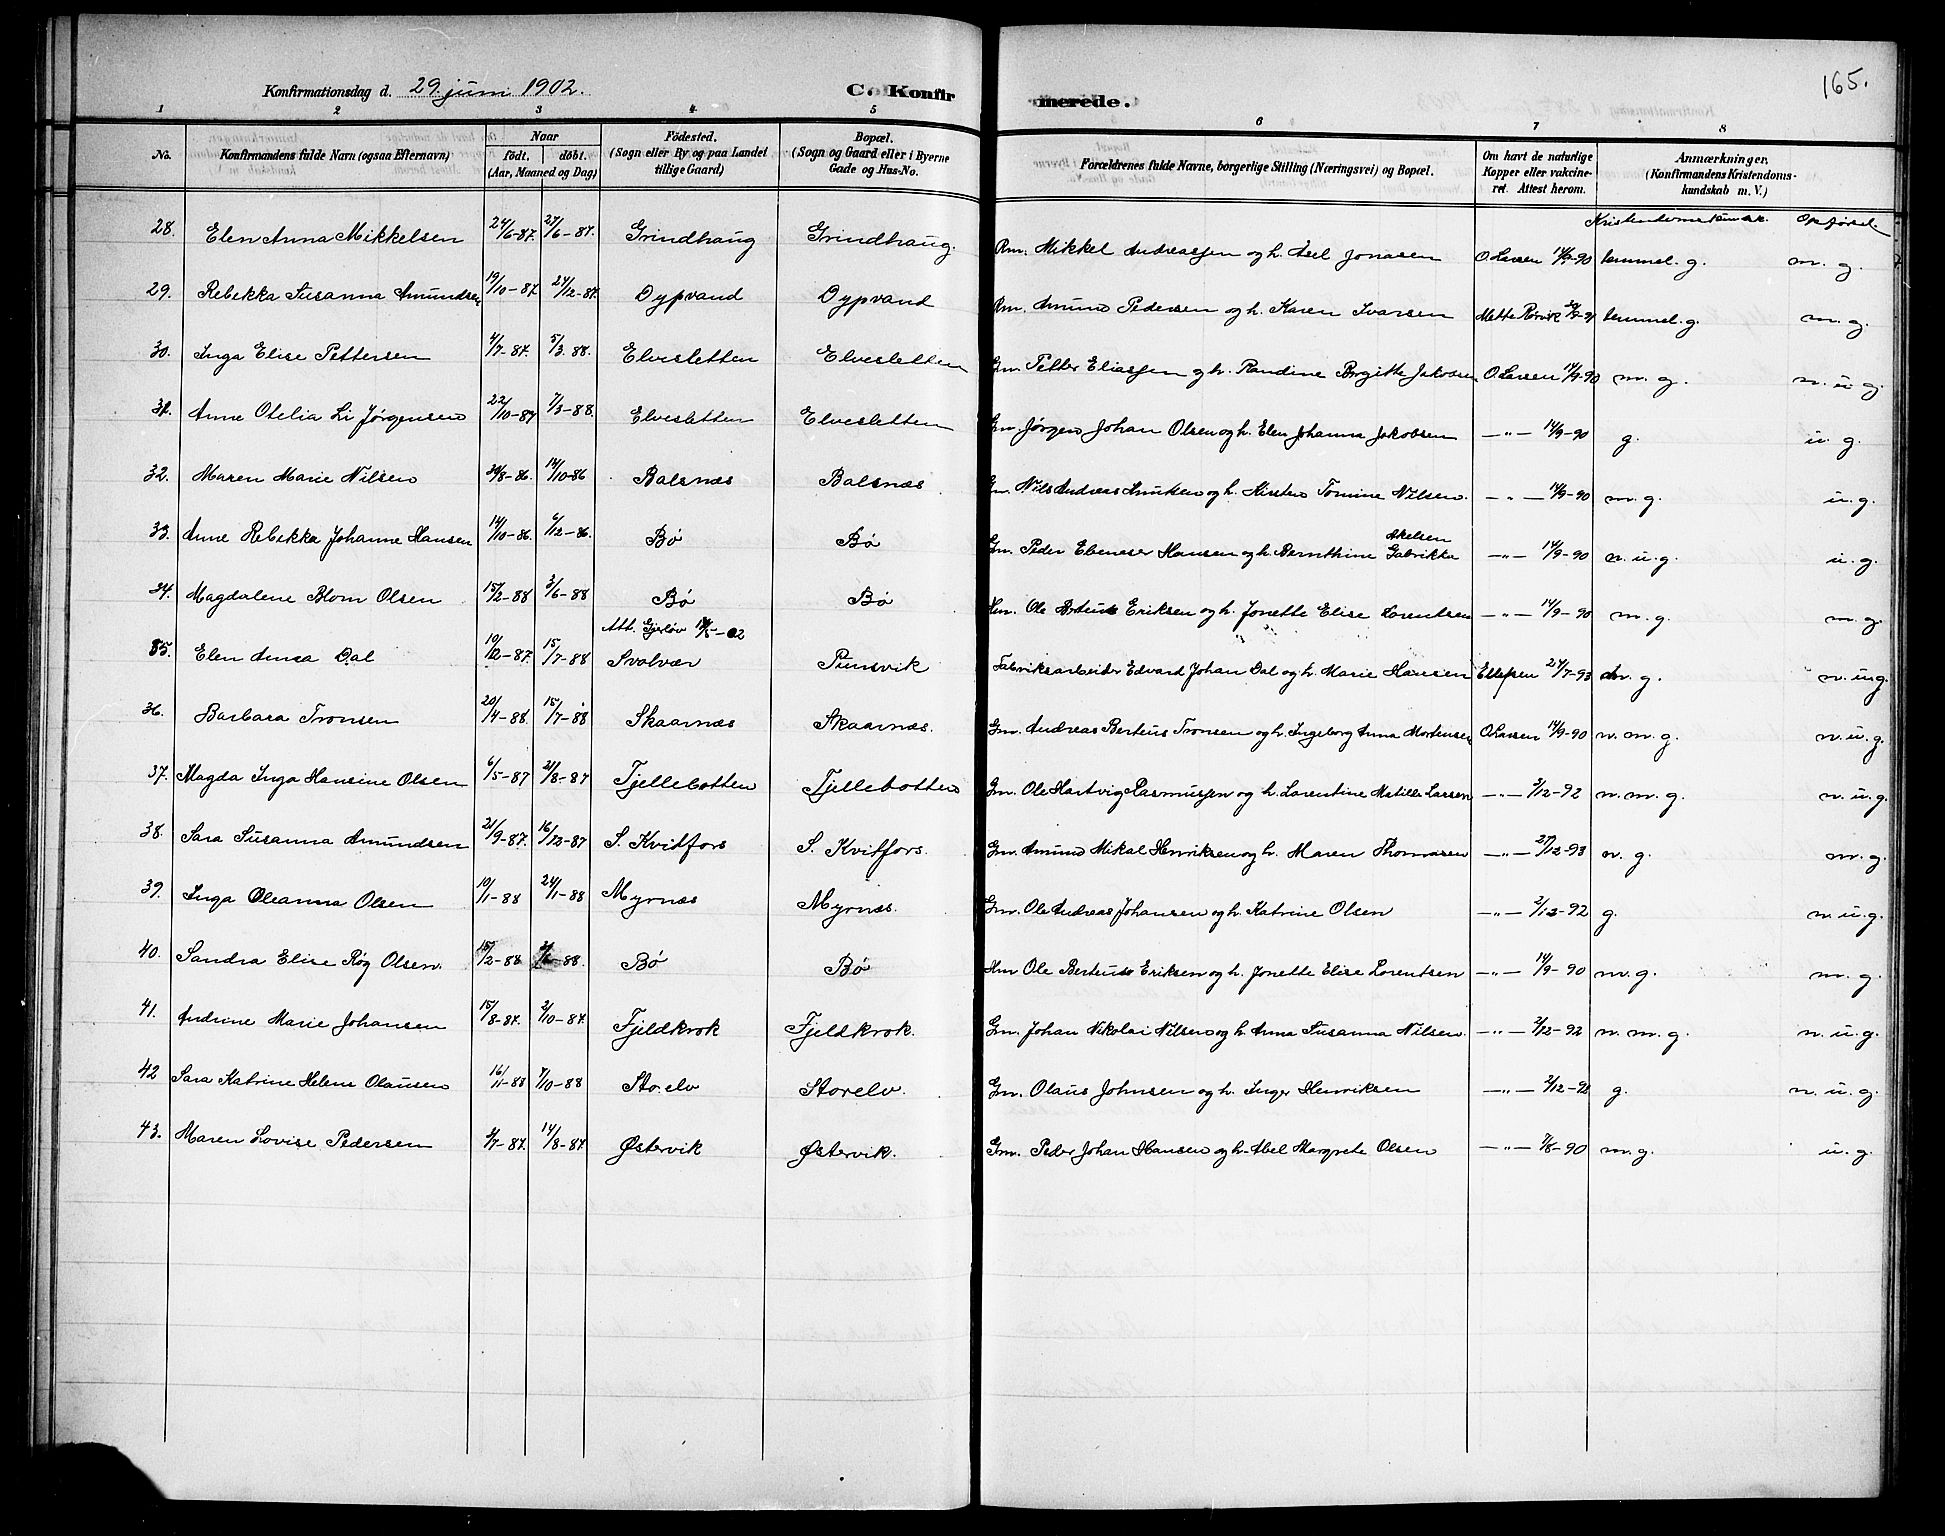 Konfirmationsdag d. 29 juni 1902. C. Konfirmerede. 165.
1 2 3 4 5 6 7 8
No. Konfirmandens fulde Navn (ogsaa Efternavn) Naar født. døbt. (Aar, Maaned og Dag) Fødested. (Sogn eller By og paa Landet tillige Gaard) Bopæl. (Sogn og Gaard eller i Byerne Gade og Hus-No. Forældrenes fulde Navne, borgerlige Stilling (Næringsvei) og Bopæl. Om havt de naturlige Kopper eller vakcineret. Attest herom. Anmærkninger. (Konfirmandens Kristendomskundskab m. V.)
Opførsel
28. Elen Anna Mikkelsen 24/6-87. 27/6-87. Grindhaug Grindhaug. Rm. Mikkel Andreassen og h. Axel Jonasen O Larsen 14/9-90 temmel. g. m. g.
29. Rebekka Susanna Amundsen 19/10-87. 24/12-87. Dypvand Dypvand Rm. Amund Pedersen og h. Karen Ivarsen Mette Rørvik temmel. g. m. g.
30. Inga Elise Pettersen 4/7-87. 5/3-88. Elvesletten Elvesletten Gm. Petter Eliassen og h. Randine Birgitte Jakobsen O. Larsen 14/9-90 m. g. n. u. g.
31. Anne Otelia Li Jørgensen 22/10-87 7/3-88. Elvesletten Elvesletten Gm. Jørgen Johan Olsen og h. Elen Johanna Jakobsen —"— 14/9-90 g. u. g.
32. Maren Marie Nilsen 29/8-86. 14/10-86 Balsnæs Balsnæs Gm. Nils Andreas Knutsen og h. Kirsten Tomine Nilsen. —"— 14/9-90 m. g. u. g.
33. Anne Rebekka Johanne Hansen 14/10-86. 6/12-86. Bø Bø Gm. Peder Ebeneser Hansen og h. Bernthine Gabrikke Akelsen —"— 14/9-90 n. u. g. u. g.
34. Magdalene Blom Olsen 15/2-88 3/6-88 Bø Bø Hm. Ole Berteus Eriksen og h. Jonette Elise Lorentsen —"— 14/9-90 m. g. m. g.
Att. Gjerløv
35. Elen Anna Dal 10/12-87. 15/7-88 Svolvær Punsvik Fabriksarbeider Edvard Johan Dal og h. Marie Hansen Ellefsen 24/7-93 m. g. n. u. g.
36. Barbara Tronsen 20/4-88. 15/7-88 Skaarnæs Skaarnæs. Gm. Andreas Berteus Tronsen og h. Ingeborg Anna Mortensen O. Larsen 14/9-90 n. m. g. n. u. g.
37. Magda Inga Hansine Olsen 6/5-87 21/8-87 Fjellebotten Fjellebotten Gm. Ole Hartvig Rasmussen og h. Larentine Matilde Larsen —"— 2/12-92 n. m. g. n. u. g.
38. Sara Susanna Amundsen 21/9-87. 16/12-87 S. Kvitfors S. Kvitfors. Gm. Amund Mikal Henriksen og h. Maren Thomasen —"— 27/12-93 n. g. m. g.
39. Inga Oleanna Olsen 10/1-88 24/1-88 Myrnæs Myrnæs. Gm. Ole Andreas Johansen og h. Katrine Olsen —"— 2/12-92 g. n. u. g.
40. Sandra Elise Røg Olsen. 15/2-88 3/6-88. Bø Bø Hm Ole Berteus Eriksen og h. Jonette Elise Lorentsen —"— 14/9-90 m. g. m. g.
41. Andrine Marie Johansen 15/8-87. 2/10-87. Fjeldkrok Fjeldkrok. Gm. Johan Nikolai Nilsen og h. Anna Susanna Nilsen. —"— 2/12-92 n. m. g. n. u. g.
42 Sara Katrine Helene Olausen 16/11-88 7/10-88 Storelv Storelv. Gm. Olaus Johnsen og h. Inger Henriksen —"— 2/12-92 g. n. u. g.
43. Maren Lovise Pedersen 4/7-87. 14/8-87 Østervik Østervik. Gm. Peder Johan Hansen og h. Abel Margrete Olsen —"— 7/8-90 m. g. u. g.